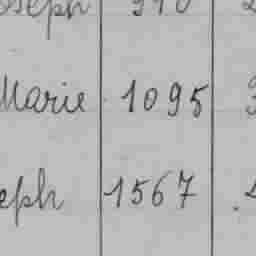 oseph 910
Marie 1095 3
eph 1567